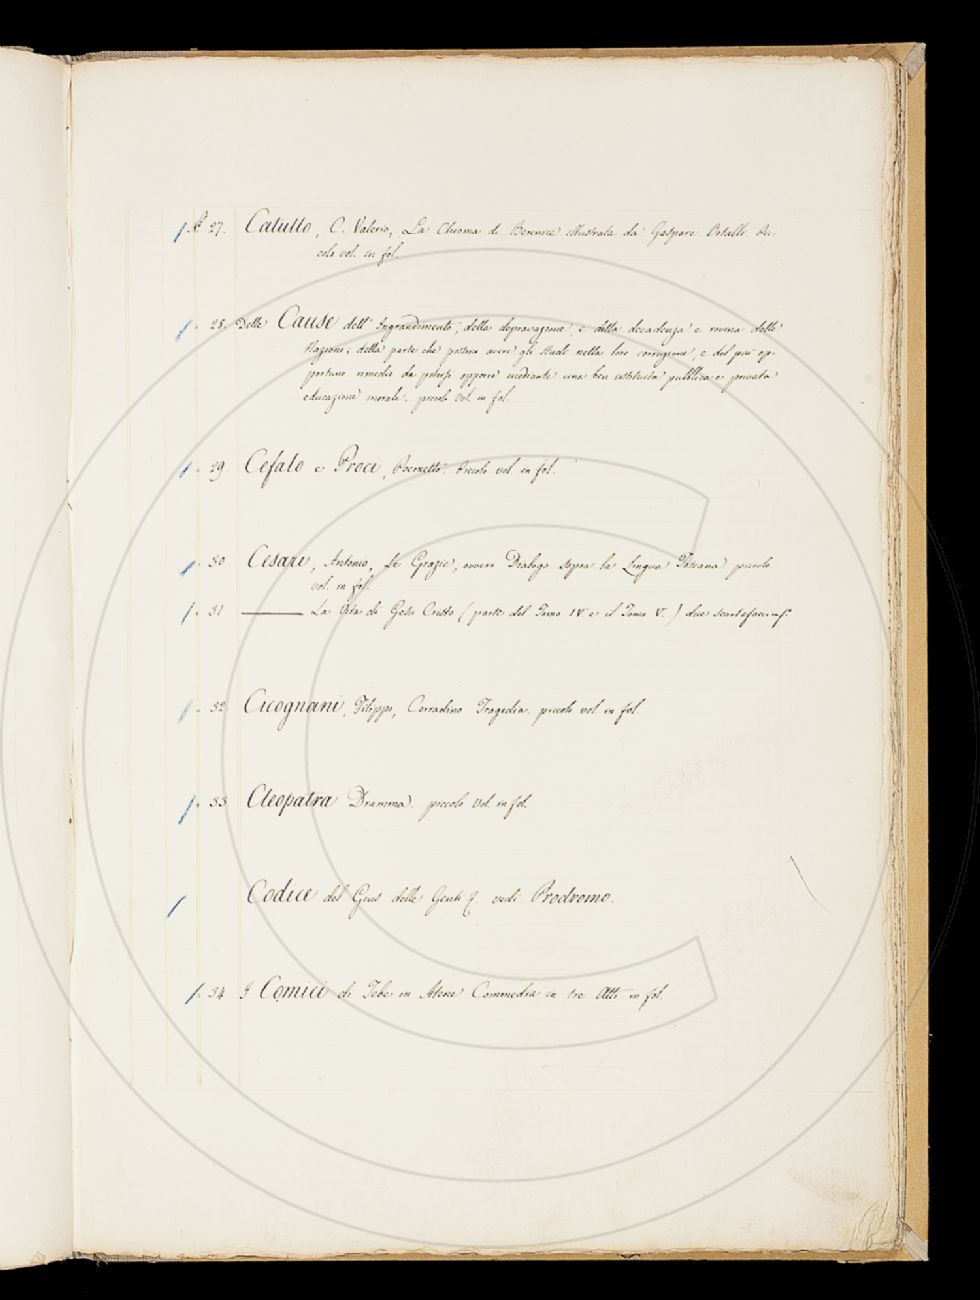 N° 27. Catullo, C. Valerio, La Chioma di Berenice illustrata da Gaspare Pic-
colo vol. in fol.
" 28 Delle Cause dell' Ingrandimento, della depravazione, e della decadenza e rovina delle
Nazioni; della parte che possono avere gli Studi nella loro corruzione, e del più op-
portuno rimedio da potersi opporre mediante una ben istituita pubblica e privata
educazione morale. piccolo vol. in fol.
" 29. Cefalo e Proci, Poemetto. Piccolo vol. in fol.
" 30 Cesari, Antonio, Le Grazie, ovvero Dialogo sopra la Lingua Toscana piccolo
vol. in fol.
" 31 ——— La Vita di Gesù Cristo (parte del Tomo IV. e il Tomo V.) due scartafacci in f.
" 32 Cicognani, Filippo, Corradino Tragedia. piccolo vol. in fol.
" 33 Cleopatra Dramma. piccolo vol. in fol.
Codice del Gius delle Genti vedi Prodromo.
" 34 I Comici di Tebe in Atene Commedia in tre Atti in fol.